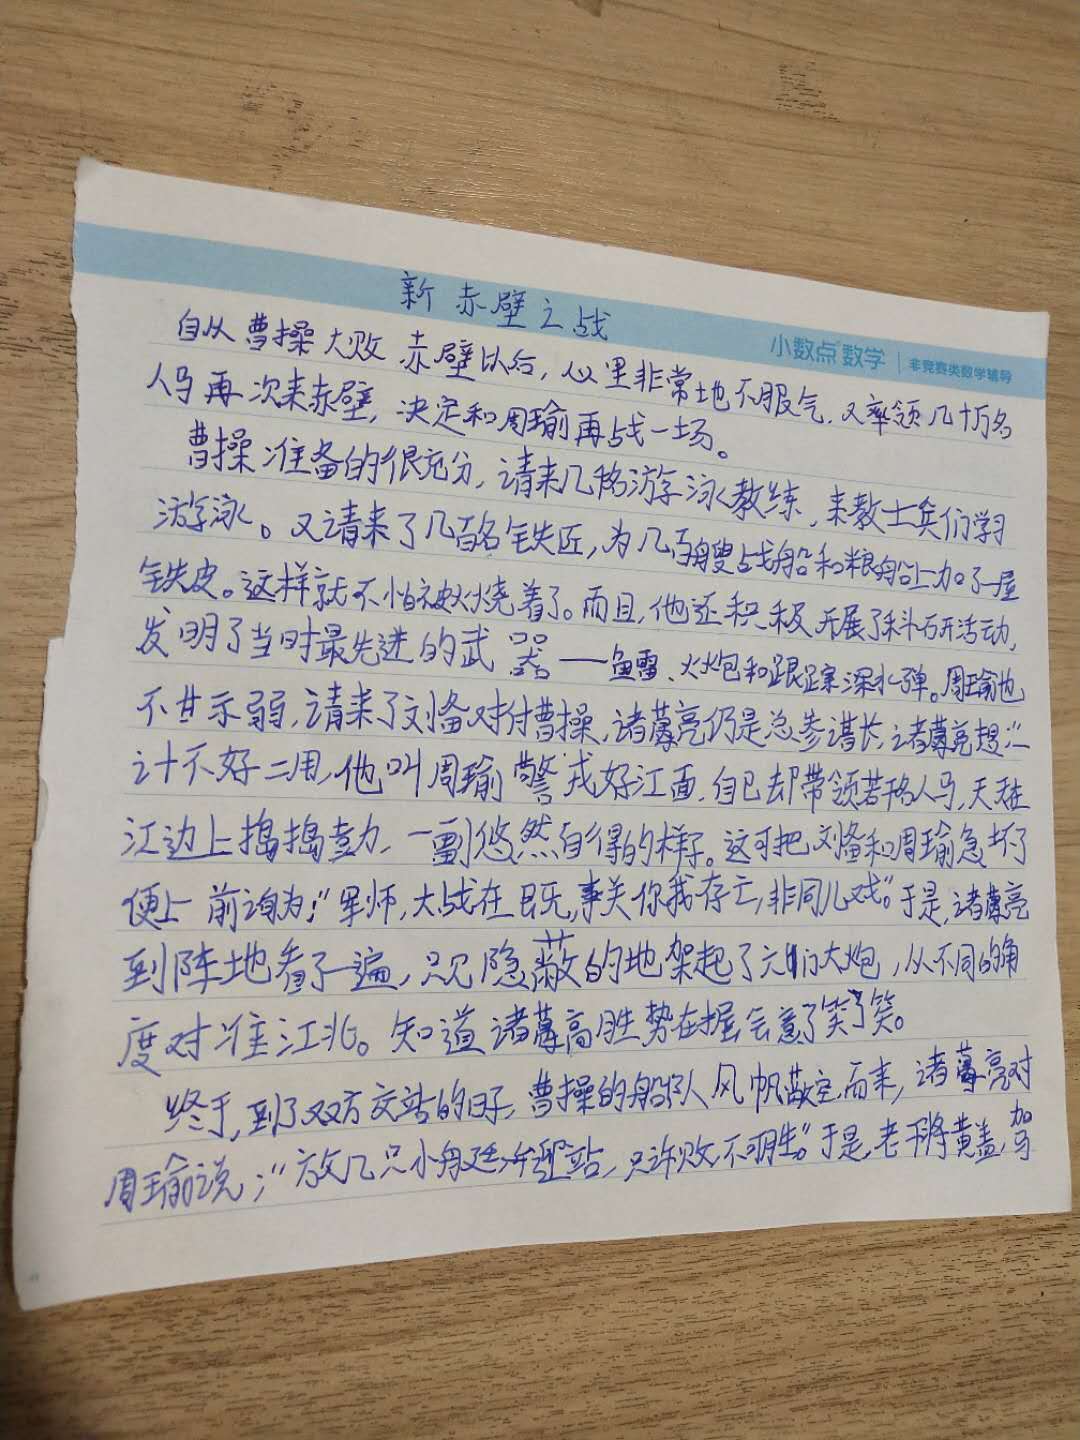 新赤壁之战
小数点数学 非竞赛类数学辅导
自从曹操大败赤壁以后，心里非常地不服气，又率领几十万名
人马再次来赤壁，决定和周瑜再战一场。
曹操准备的很充分，请来几名游泳教练，来教士兵们学习
游泳。又请来了几百名铁匠，为几百艘战船和粮船上加了一层
铁皮。这样就不怕被火烧着了。而且，他还积极开展了科研活动，
发明了当时最先进的武器——鱼雷、火炮和跟踪深水弹。周瑜也
不甘示弱，请来了刘备对付曹操，诸葛亮仍是总参谋长，诸葛亮想："一
计不好二用，他叫周瑜警戒好江面，自己却带领若干名人马，天天在
江边上捣捣鼓鼓，一副悠然自得的样子。这可把刘备和周瑜急坏了
便上前询为："军师，大战在既，事关你我存亡，非同儿戏。"于是，诸葛亮
到阵地看了一遍，只见隐蔽的地架起了六门大炮，从不同的角
度对准江北。知道诸葛亮胜势在握会意了笑了笑。
终于，到了双方交站的日子，曹操的船队风帆蔽空而来，诸葛亮对
周瑜说："放几只小舟迎站，只许败不可胜。"于是，老将黄盖，驾